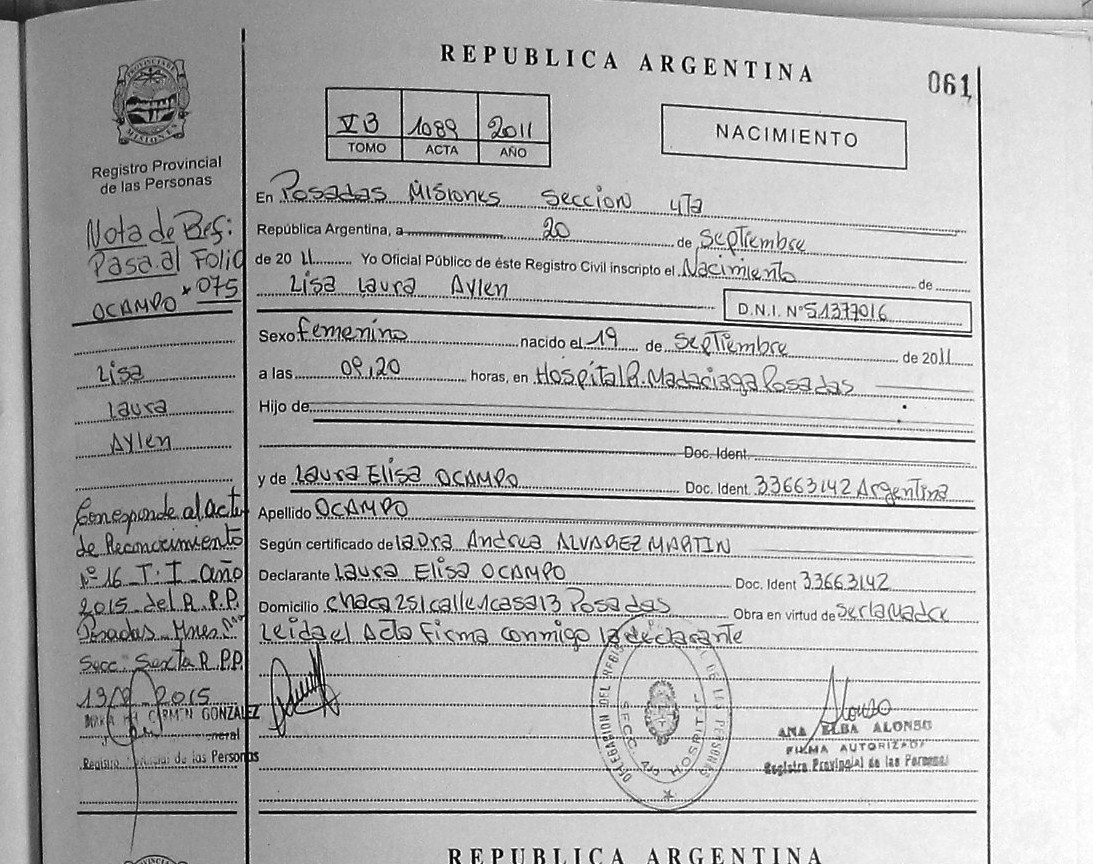 REPUBLICA ARGENTINA
061
PROVINCIA DE MISIONES
Registro Provincial
de las Personas
VB 1089 2011
TOMO ACTA AÑO
NACIMIENTO
Nota de Ref:
Pasa al Folio
075
OCAMPO
Lisa
Laura
Aylen
Corresponde al Acta
de Reconocimiento
Nº 16 T. I Año
2015 del R.P.P.
Posadas Mnes.
Secc. Sexta R.P.P.
2015
CARMEN GONZALEZ
Registro Provincial de las Personas
En Posadas Misiones Seccion 4Ta
República Argentina, a 20 de Septiembre
de 2011 Yo Oficial Público de éste Registro Civil inscripto el Nacimiento de
Lisa Laura Aylen
D.N.I. Nº 51377016
Sexo femenino nacido el 19 de Septiembre de 2011
a las 09,20 horas, en Hospital R. Madariaga Posadas
Hijo de
Doc. Ident.
y de Laura Elisa OCAMPO Doc. Ident. 33663142 Argentina
Apellido OCAMPO
Según certificado de Laura Andrea ALVAREZ MARTIN
Declarante Laura Elisa OCAMPO Doc. Ident 33663142
Domicilio Chaca 251 calle 1 casa 13 Posadas Obra en virtud de ser la Madre
Leida el Acta Firma conmigo la declarante
Alonso
ANA ELBA ALONSO
FIRMA AUTORIZADA
Registro Provincial de las Personas
REPUBLICA ARGENTINA